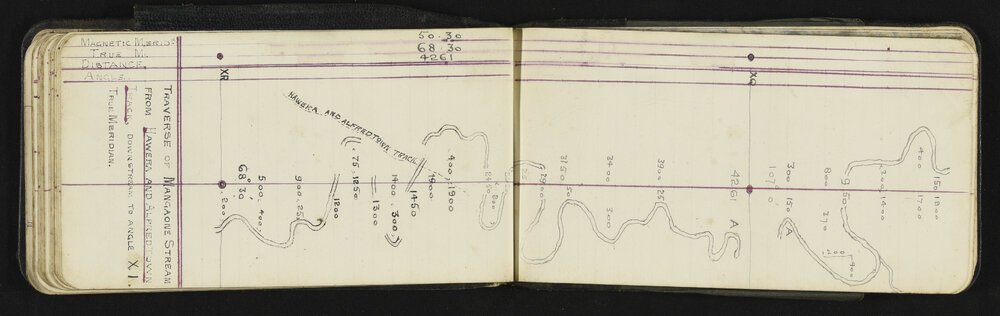 MAGNETIC MERID.
TRUE M.
DISTANCE.
ANGLE.
50.30
68.30
4261
TRAVERSE OF MANGAONE STREAM
FROM HAWERA AND ALFREDTOWN
TRACK DOWNSTREAM TO ANGLE XI.
TRUE MERIDIAN.
XR
XQ
HAWERA AND ALFREDTOWN TRACK
68°30
200
500, 400
900, 25
1200
75, 1250
1300
1400, 300
1450
1900
400, 1900
2900
3150 50
3400 300
3900 25
4261 A
107° 0
300 150 A
800 270
200
400
950
200 1400
400 1700
150 1800